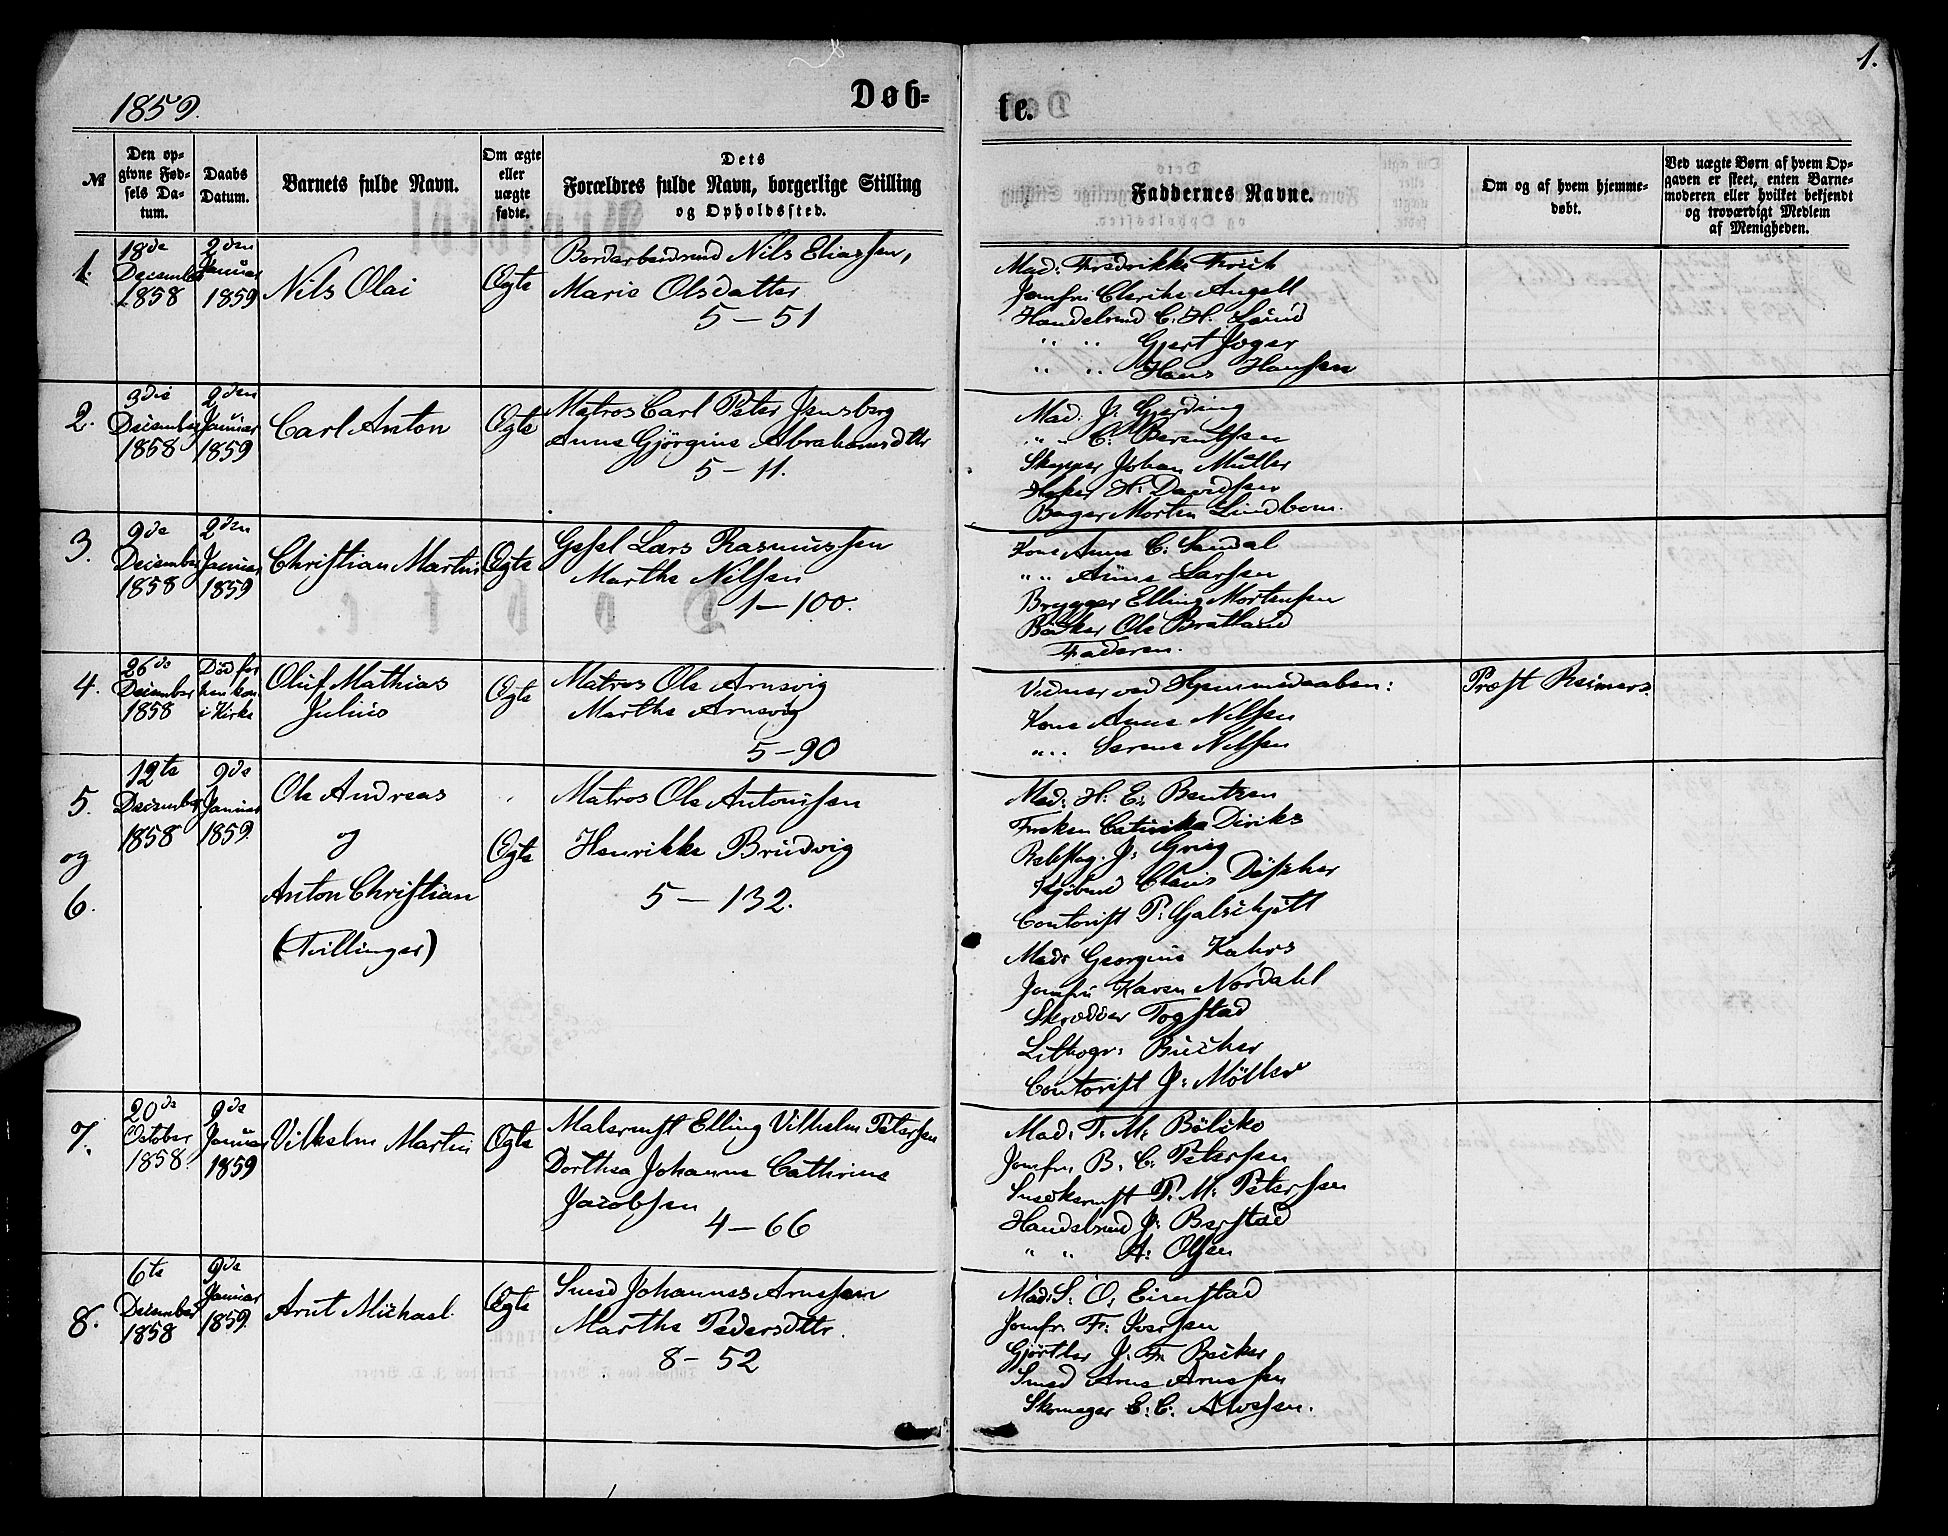 1.
1859.
Døb-
te.
№
Den op-
givne Fød-
sels Da-
tum.
Daabs
Datum.
Barnets fulde Navn.
Om ægte
eller
uægte
fødte.
Dets
Forældres fulde Navn, borgerlige Stilling
og Opholdssted.
Faddernes Navne.
Om og af hvem hjemme-
døbt.
Ved uægte Børn af hvem Op-
gaven er skeet, enten Barne-
moderen eller hvilket bekjendt
og troværdigt Medlem
af Menigheden.
1.
18de
December
1858
2den
Januar
1859
Nils Olai
Ægte
Nils Eliassen,
Marie Olsdatter
5-51
Mad: Fredrikke
Jomfru Angell
Handelsmd C. H. Lund
" " Gjert
" " Hans Hansen
2.
3die
December
1858
2den
Januar
1859
Carl Anton
Ægte
Matros Carl Peter Jensberg
Anne Gjørgine Abrahamsdtr
5-11.
Mad. J. Gjerding
" " C. Berentsen
Skipper Johan Müller
H: Davidsen
Bager Morten Lindbom.
3.
9de
December
1858
2den
Januar
1859
Christian Martin
Ægte
Gesel Lars Rasmussen
Marthe Nilsen
1-100.
Kone Anne C. Sandal
" " Anne Larssen
Brygger Elling Mortensen
Ole Bratland
Faderen.
4.
26de
December
1858
Død før
i Kirke
Oluf Mathias
Julius
Ægte
Matros Ole Arnevig
Marthe Arnevig
5-90
Vidner ved Hjemmedaaben:
Kone Anne Nilssen
" " Serene Nilssen
Præst Reimers.
5.
og
6.
12te
December
1858
9de
Januar
1859
Ole Andreas
og
Anton Christian
(Tvillinger)
Ægte
Matros Ole Antonissen
Henrikke Brudvig
5-132.
Mad: H. E. Bentzen
Frøken Diriks
J: Grieg
Claus
Contorist P: Galschjøtt
Mad: Georgine Kahrs
Jomfru Karen Nordahl
Skrædder Togstad
Lithogr: Bucher
Contorist J: Möller
7.
20de
October
1858.
9de
Januar
1859
Vilhelm Martin
Ægte
Malermst Elling Vilhelm Petersen
Dorthea Johanne Cathrine
Jacobsen
4-66
Mad. T. M.
Jomfr. B. C. Petersen
Snedkermst P. M. Petersen
Handelsmd J. Berstad
" " A: Olsen
8.
6te
December
1858
9de
Januar
1859.
Arnt Michael
Ægte
Smed Johannes Arnessen
Marthe Pedersdtr.
8-52
Mad: S. O. Eirenstad
Jomfr. Fr. Iversen
Gjørtler J. Fr. Becker
Smed Arne Arnessen
Skomager E. C.